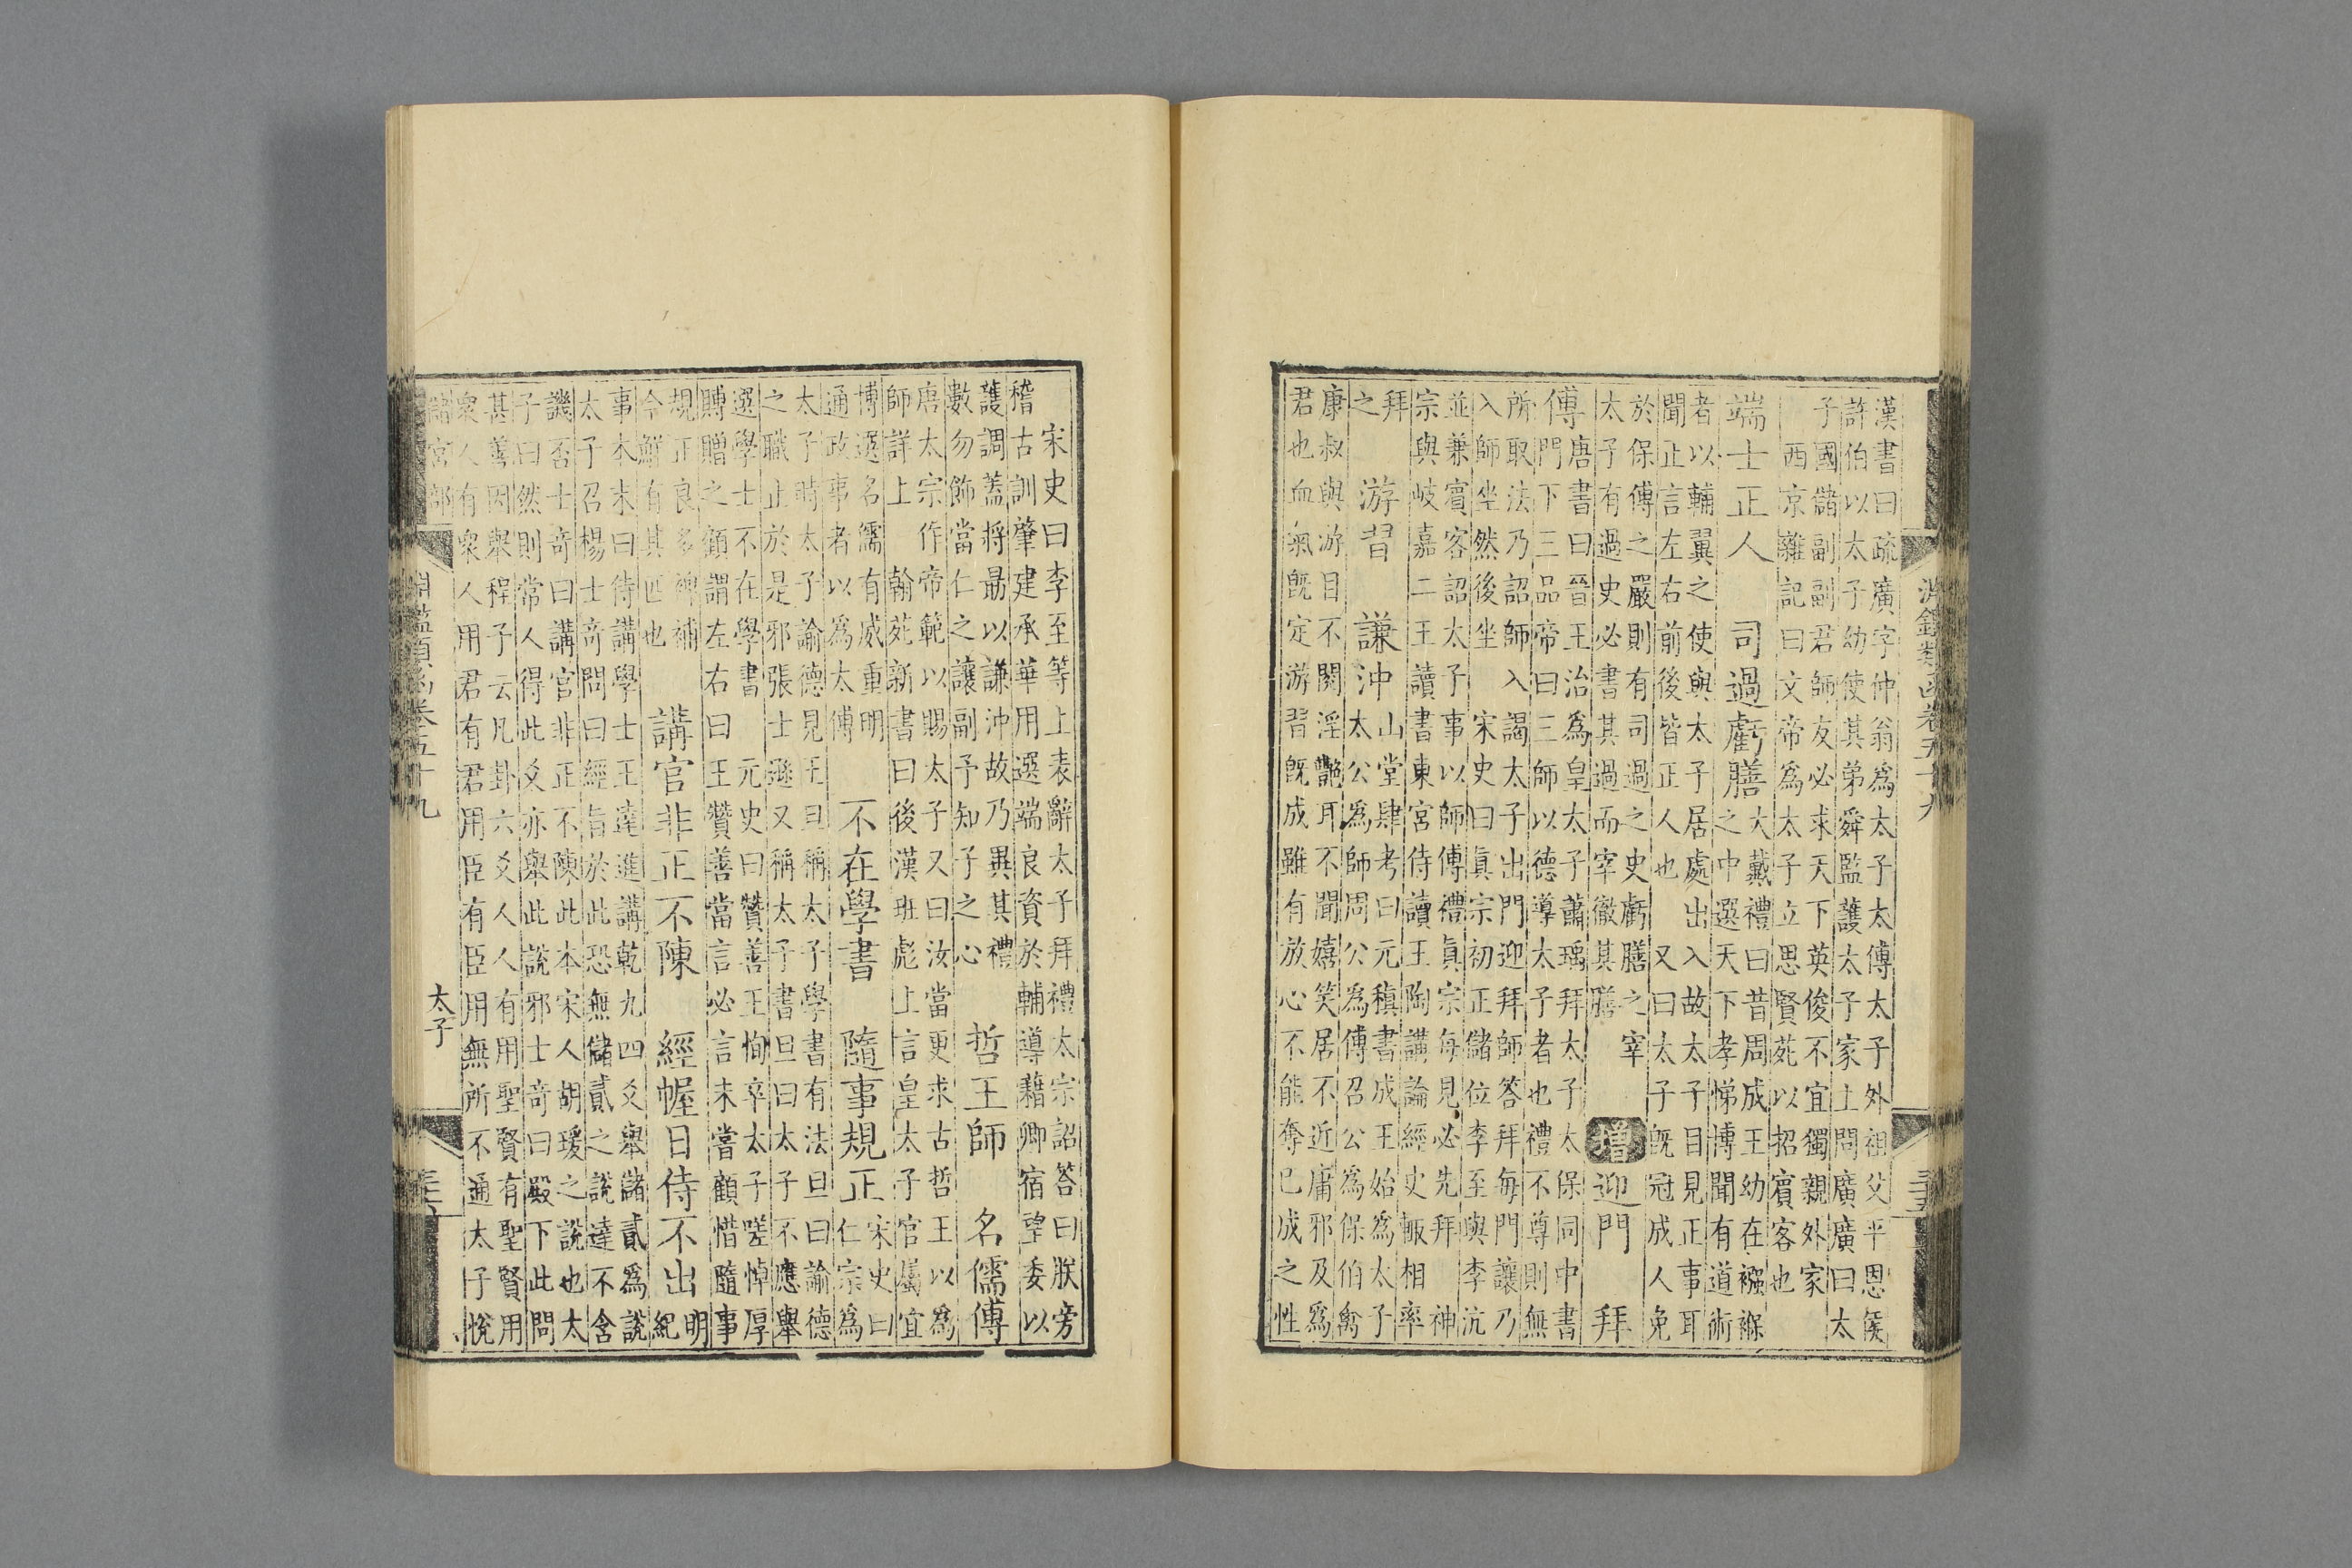 漢書曰疏廣字仲翁為太子太傅太子外祖父平恩侯
許伯以太子幼使其弟舜監護太子家上問廣廣曰太
子國儲副副君師友必求天下英俊不宜獨親外家
西京雜記曰文帝為太子立思賢苑以招賓客也
端士正人
司過虧膳
大戴禮曰昔周成王幼在襁褓
之中選天下孝悌博聞有道術
者以輔翼之使與太子居處出入故太子目見正事耳
聞止言左右前後皆正人也 又曰太子旣冠成人免
於保傅之嚴則有司過之史虧膳之宰
太子有過史必書其過而宰徹其膳
增
迎門
拜
傅
唐書曰晉王治為皇太子蕭瑀拜太子太保同中書
門下三品帝曰三師以德導太子者也禮不尊則無
所取法乃詔師入謁太子出門迎拜師答拜每門讓乃
入師坐然後坐 宋史曰眞宗初正儲位李至與李沆
並兼賓客詔太子事以師傅禮眞宗每見必先拜 神
宗與岐嘉二王讀書東宮侍讀王陶講論經史輒相率
拜
之
游習
謙沖
山堂肆考曰元稹書成王始為太子
太公為師周公為傅召公為保伯禽
康叔與游目不閱淫艷耳不聞嬉笑居不近庸邪及為
君也血氣旣定游習旣成雖有放心不能奪已成之性
淵鑑類函卷五十九
宋史曰李至等上表辭太子拜禮太宗詔答曰朕旁
稽古訓肇建承華用選端良資於輔導藉卿宿望委以
護調蓋將最以謙沖故乃異其禮
數勿飾當仁之讓副予知子之心
哲王師
名儒傅
唐太宗作帝範以賜太子又曰汝當更求古哲王以為
師詳上 翰苑新書曰後漢班彪上言皇太子官屬宜
博選名儒有威重明
通政事者以為太傅
不在學書
隨事規正
宋史曰
仁宗為
太子時太子諭德見王旦稱太子學書有法旦曰諭德
之職止於是邪張士遜又稱太子書旦曰太子不應舉
選學士不在學書 元史曰贊善王恂卒太子嗟悼厚
賻贈之顧謂左右曰王贊善當言必言未嘗顧惜隨事
規正良多裨補
今鮮有其匹也
講官非正不陳
經幄日侍不出
明
紀
事本末曰侍講學士王達進講乾九四爻舉儲貳為說
太子召楊士奇問曰經旨於此恐無儲貳之說達不含
譏否士奇曰講官非正不陳此本宋人胡瑗之說也太
子曰然則常人得此爻亦舉此說邪士奇曰殿下此問
甚善因舉程子云凡卦六爻人人有用聖賢有聖賢用
衆人有衆人用君有君用臣有臣用無所不通太子悅
儲宮部
淵鑑類函卷五十九
太子